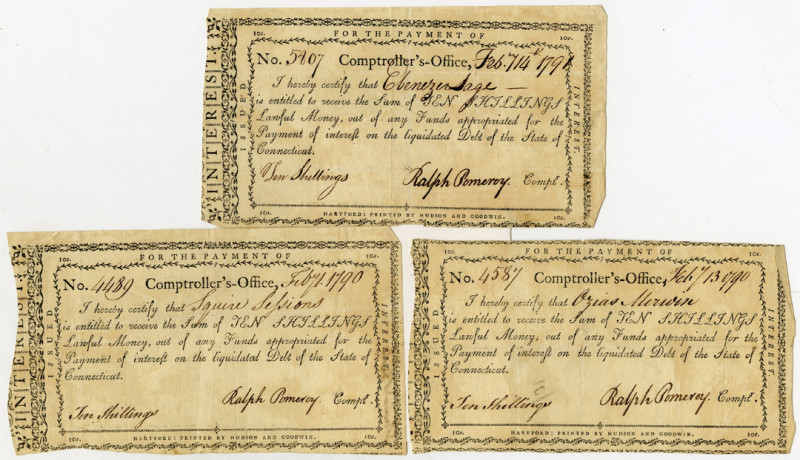 10s. FOR THE PAYMENT OF 10s.
INTEREST.
ISSUED
INTEREST.
No. 5807 Comptroller's-Office, Feb.y 14th 1791
I hereby certify that Ebenezer Sage
is entitled to receive the Sum of TEN SHILLINGS
Lawful Money, out of any Funds appropriated for the
Payment of interest on the liquidated Debt of the State of
Connecticut.
Ten Shillings Ralph Pomeroy. Compt.
10s. HARTFORD: PRINTED BY HUDSON AND GOODWIN. 10s.
10s. FOR THE PAYMENT OF 10s.
INTEREST
ISSUED
INTEREST
No. 4489 Comptroller's-Office, 1790
I hereby certify that Squire Sessions
is entitled to receive the Sum of TEN SHILLINGS
Lawful Money, out of any Funds appropriated for the
Payment of interest on the liquidated Debt of the State of
Connecticut.
Ten Shillings Ralph Pomeroy. Compt.
10s. HARTFORD: PRINTED BY HUDSON AND GOODWIN. 10s.
10s. FOR THE PAYMENT OF 10s.
ISSUED
INTEREST.
No. 4587 Comptroller's-Office, Feb.y 13 1790
I hereby certify that Ozias Merwin
is entitled to receive the Sum of TEN SHILLINGS
Lawful Money, out of any Funds appropriated for the
Payment of interest on the liquidated Debt of the State of
Connecticut.
Ten Shillings Ralph Pomeroy. Compt.
10s. HARTFORD: PRINTED BY HUDSON AND GOODWIN. 10s.